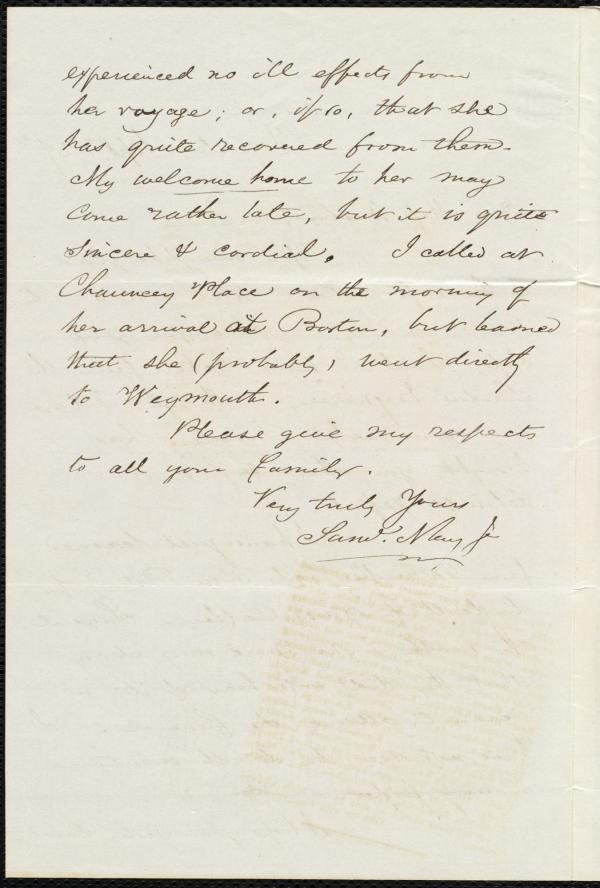 experienced no ill effects from
her voyage; or, if so, that she
has quite recovered from them.
My welcome home to her may
come rather late, but it is quite
sincere & cordial. I called at
Chauncey Place on the morning of
her arrival at Boston, but learned
that she (probably) went directly
to Weymouth.
Please give my respects
to all your family.
Very truly Yours
Saml. May Jr